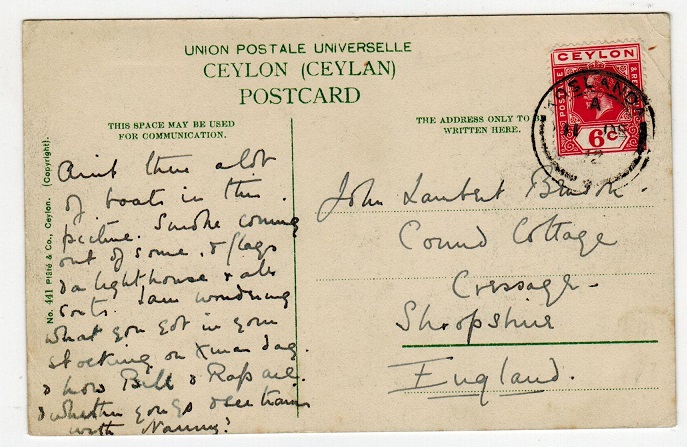 UNION POSTALE UNIVERSELLE
CEYLON (CEYLAN)
POSTCARD
THIS SPACE MAY BE USED
FOR COMMUNICATION.
THE ADDRESS ONLY TO
WRITTEN HERE.
No. 441 Plâté & Co., Ceylon. (Copyright).
CEYLON
POSTAGE
6c
A
11 DE
12
Aint there a lot
of boats in this
picture. Smoke coming
out of some, & flags
& a lighthouse & all
sorts. I am wondering
what you got in your
stocking on Xmas day.
& how Bill & Raf are.
& whether you go & see trains
with Nanny?
John Lambert
Cound Cottage
Cressage
Shropshire
England.